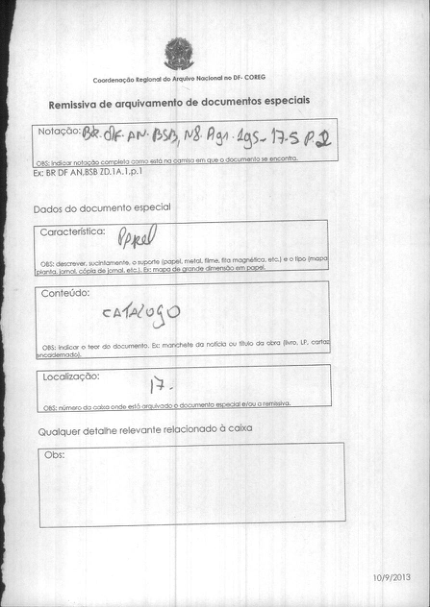 Coordenação Regional do Arquivo Nacional no DF- COREG
Remissiva de arquivamento de documentos especiais
Notação: BR.DF.AN.BSB, N8.Agr.
OBS: Indicar notação completa como está na camisa em que o documento se encontra.
Ex: BR DF AN,BSB ZD.1A.1,p.1
Dados do documento especial
Característica: Papel
OBS: descrever, sucintamente, o suporte (papel, metal, filme, fita magnética, etc.) e o tipo (mapa
planta, jornal, cópia de jornal, etc.). Ex: mapa de grande dimensão em papel.
Conteúdo:
CATALOGO
OBS: Indicar o teor do documento. Ex: manchete da notícia ou título da obra (livro, LP, cartaz
encadernado).
Localização:
17.
OBS: número da caixa onde está arquivado o documento especial e/ou a remissiva.
Qualquer detalhe relevante relacionado à caixa
Obs:
10/9/2013